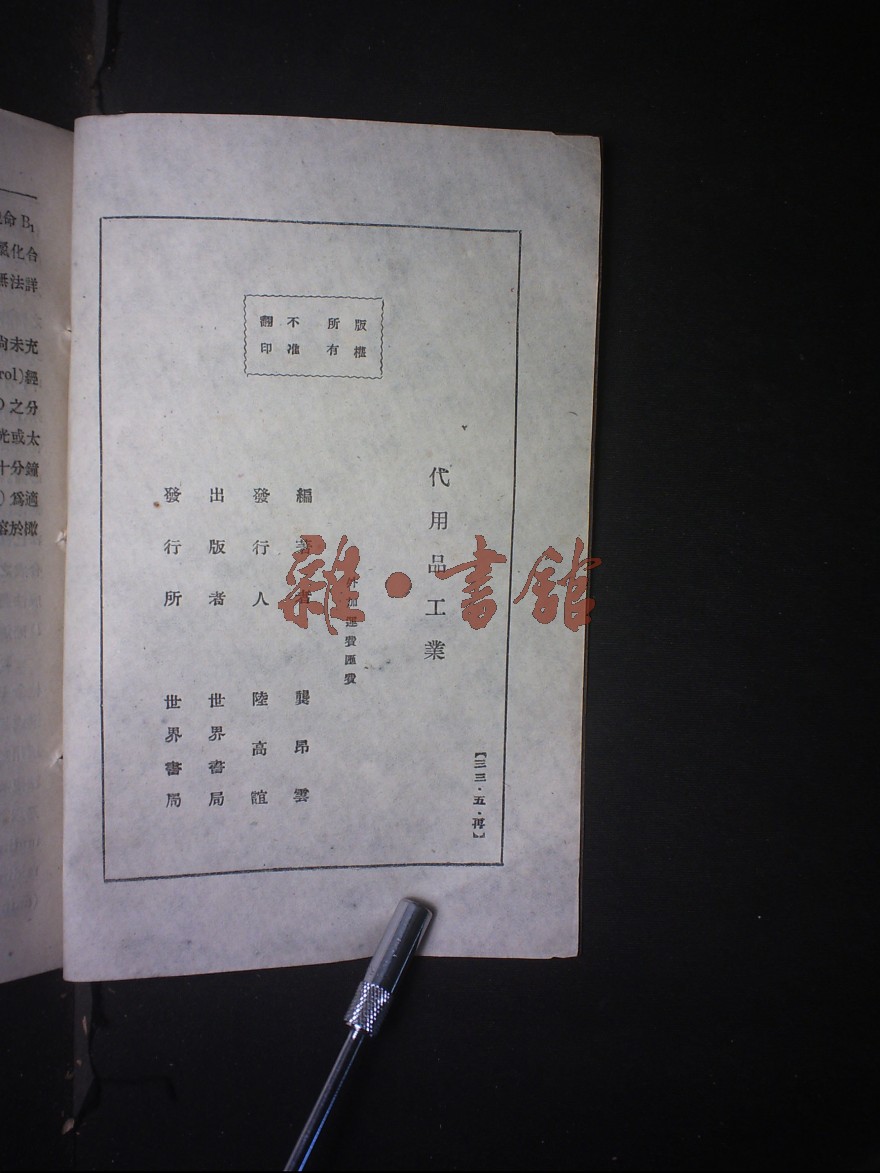 版權
所有
不准
翻印
代用品工業
外加運費匯費
編著者 龔昂雲
發行人 陸高誼
出版者 世界書局
發行所 世界書局
【三三·五·再】
雜·書館
命B₁
氫化合
無法詳
尚未充
rol)經
之分
光或太
十分鐘
)爲適
溶於微